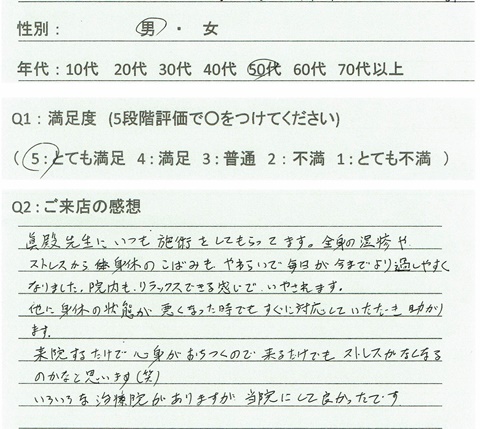 性別： 男 ・ 女
年代：10代 20代 30代 40代 50代 60代 70代以上
Q1：満足度 (5段階評価で○をつけてください)
( 5：とても満足 4：満足 3：普通 2：不満 1：とても不満 )
Q2：ご来店の感想
眞殿先生にいつも施術をしてもらってます。全身の湿疹や
ストレスから体身体のこばみも やわらいで毎日が今までより過しやすく
なりました。院内もリラックスできる感じで いやされます。
他に身体の状態が悪くなった時でもすぐに対応していただき助かり
ます。
来院するだけで心身がおちつくので来るだけでもストレスがなくなる
のかなと思います(笑)
いろいろな治療院がありますが当院にして良かったです